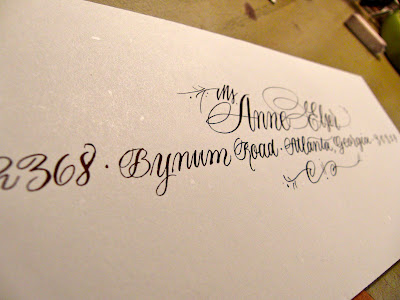 Ms.
Anne
2368 · Bynum Road · Atlanta, Georgia